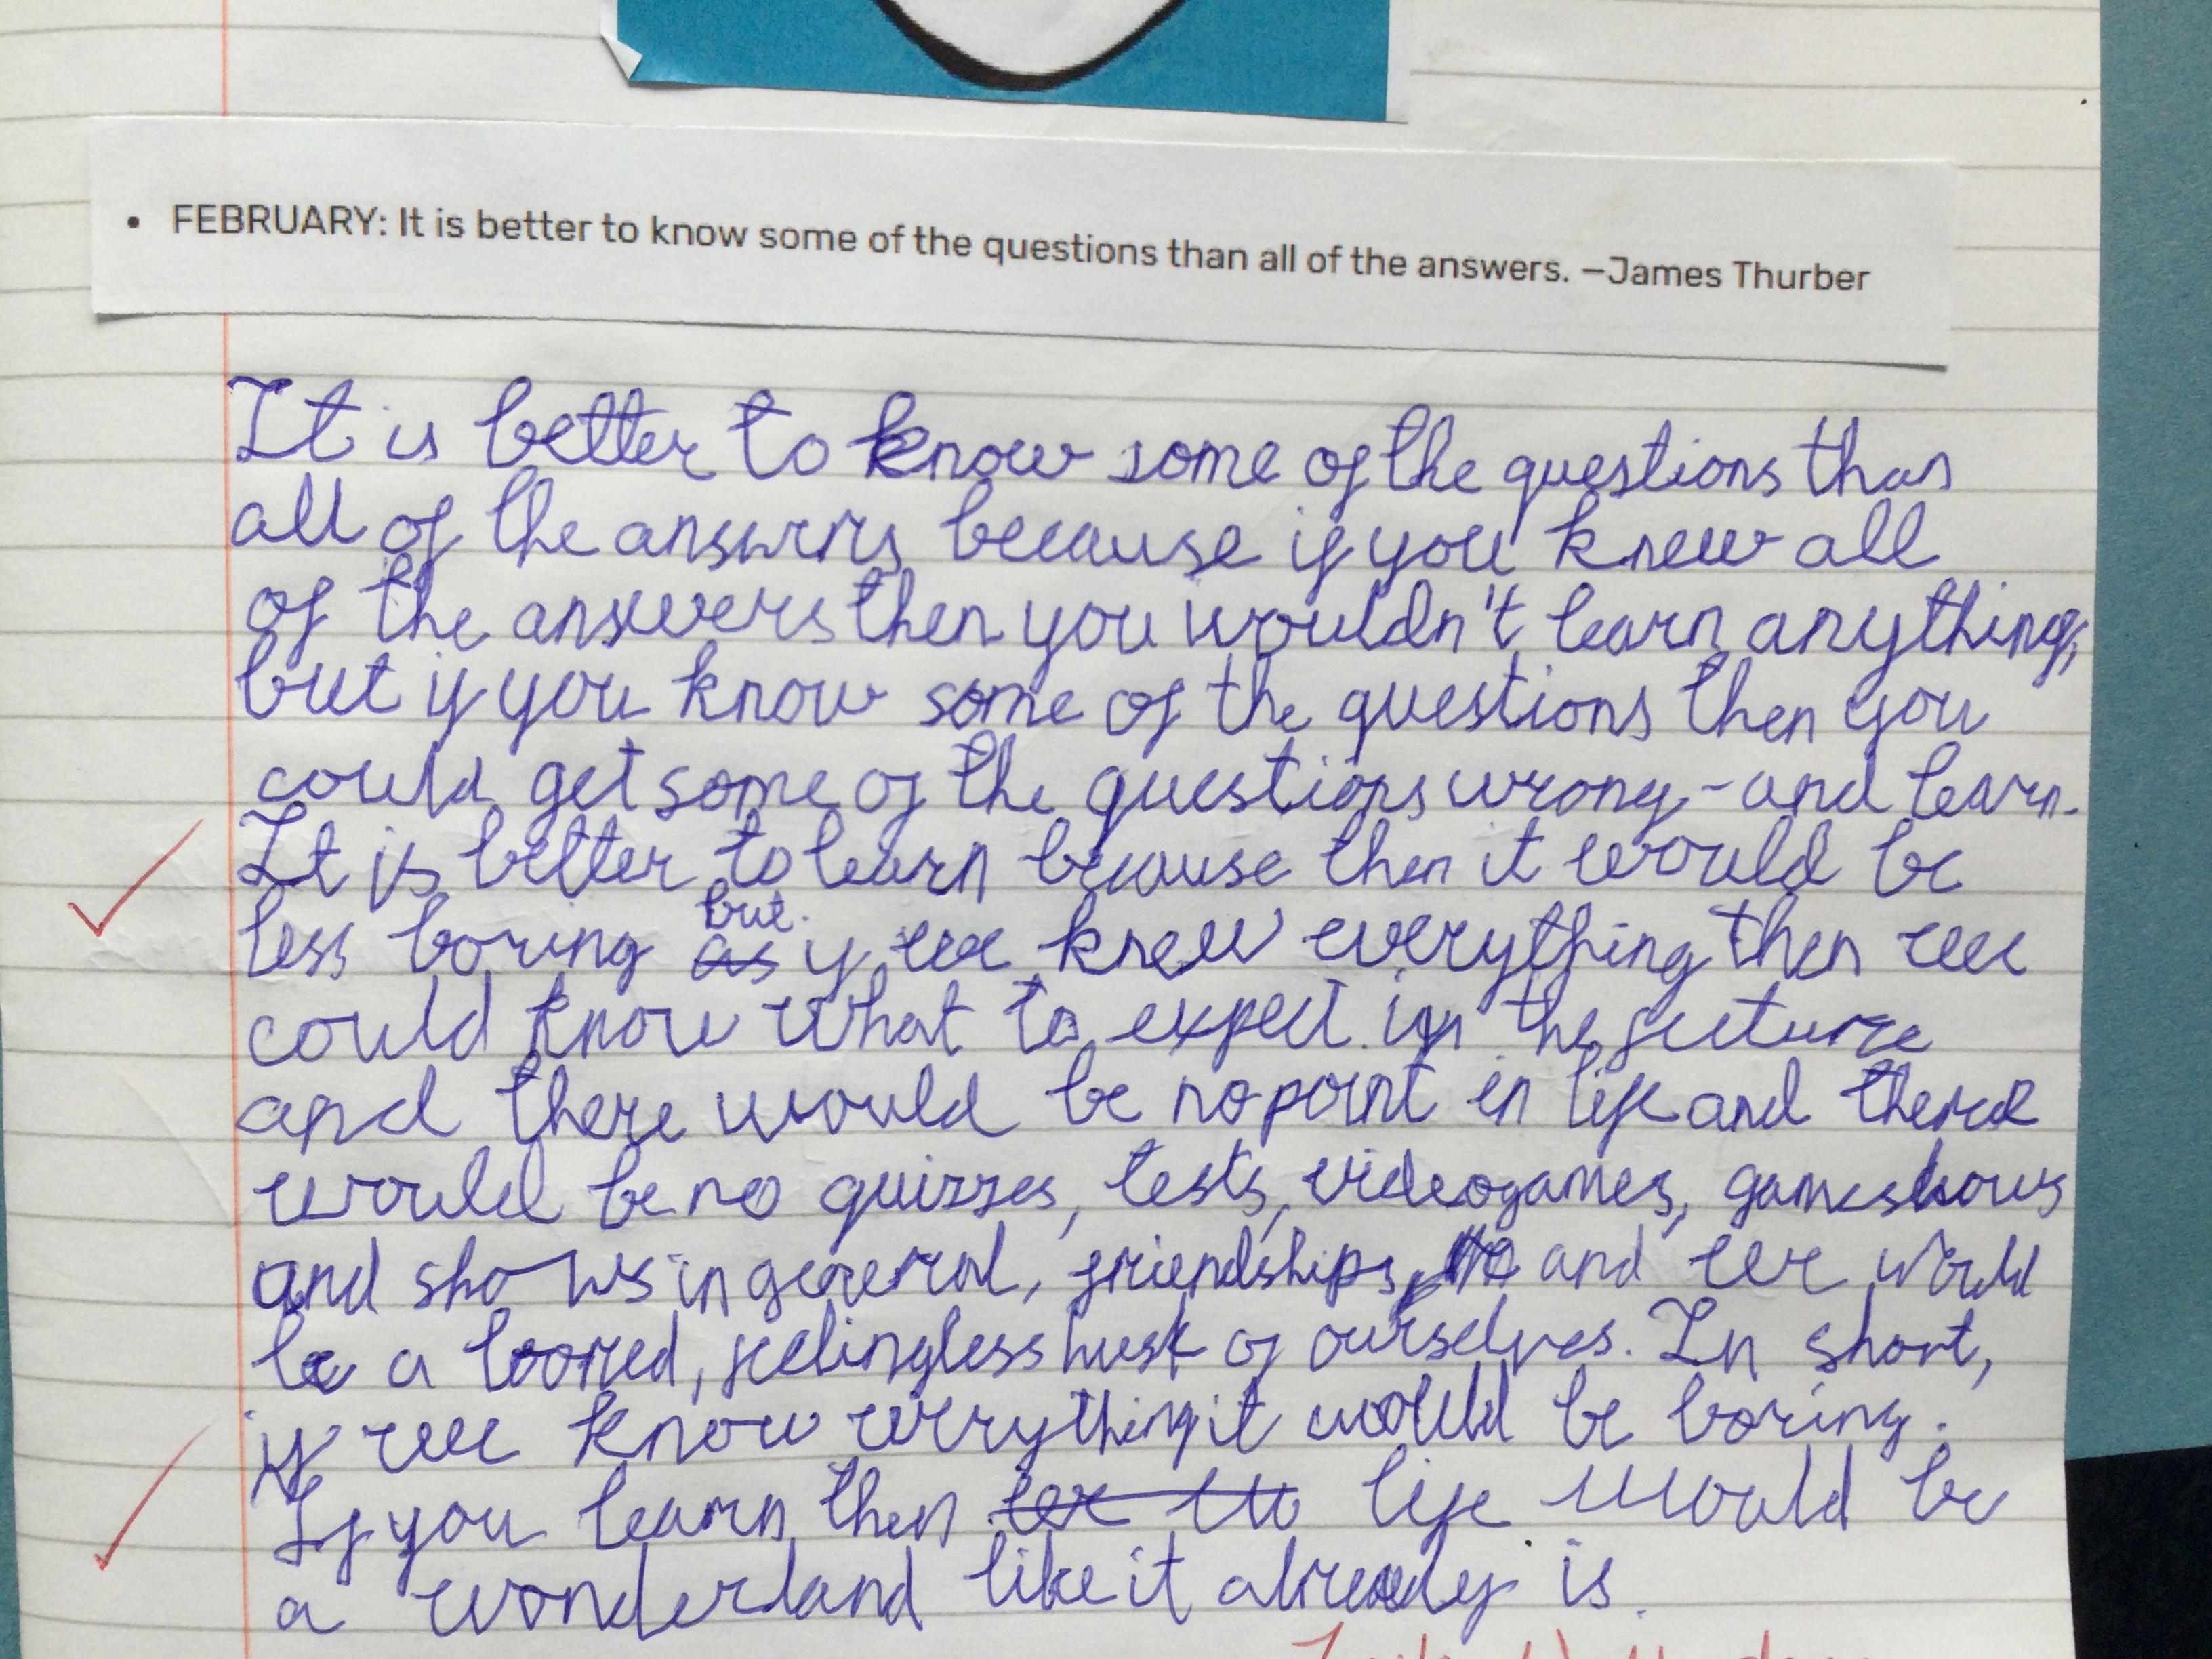 • FEBRUARY: It is better to know some of the questions than all of the answers. –James Thurber
It is better to know some of the questions than
all of the answers because if you knew all
of the answers then you wouldn't learn anything,
but if you know some of the questions then you
could get some of the questions wrong - and learn.
It is better to learn because then it would be
but
less boring as if we knew everything then we
could know what to expect in the future
and there would be no point in life and there
would be no quizzes, tests, videogames, gameshows
and shows in general, friendships, and we would
be a bored, feelingless husk of ourselves. In short,
if we know everything it would be boring.
If you learn then life would be
a wonderland like it already is.